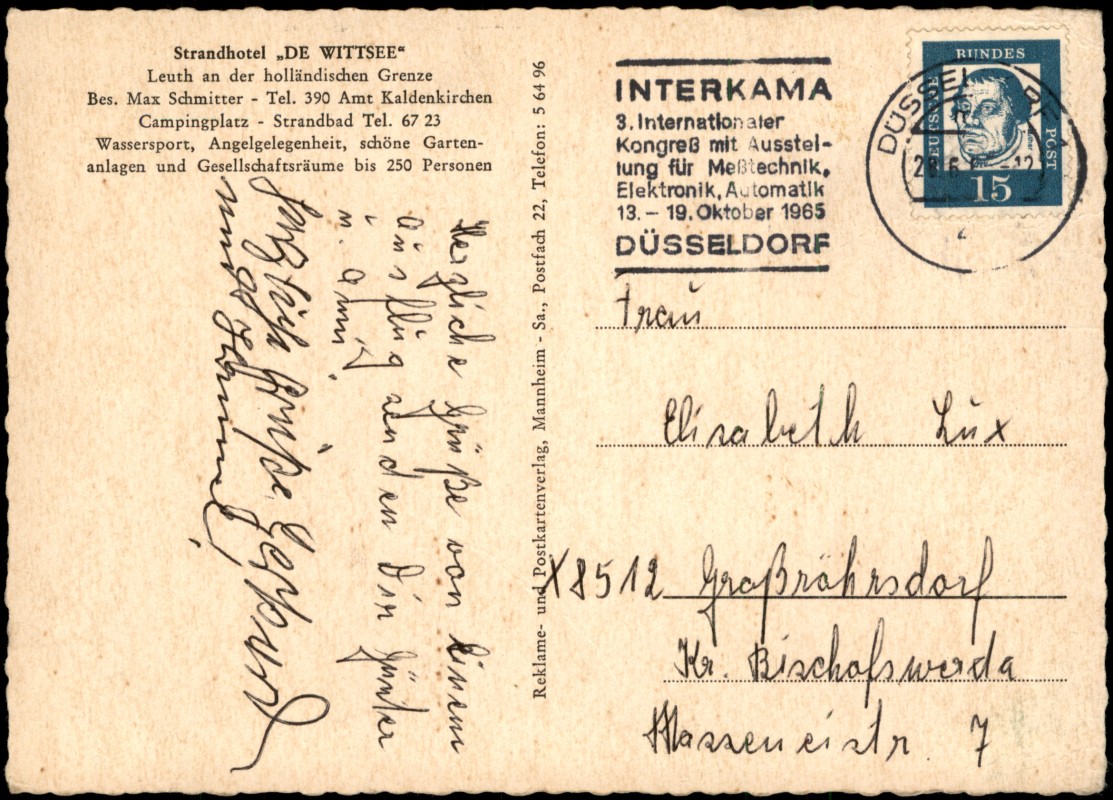 Strandhotel „DE WITTSEE“
Leuth an der holländischen Grenze
Bes. Max Schmitter - Tel. 390 Amt Kaldenkirchen
Campingplatz - Strandbad Tel. 67 23
Wassersport, Angelgelegenheit, schöne Garten-
anlagen und Gesellschaftsräume bis 250 Personen
Herzliche Grüße von Einem
Ausflug senden Dir Günter
u. Anni
Herzliche Grüße
und
Reklame- und Postkartenverlag, Mannheim - Sa., Postfach 22, Telefon: 5 64 96
INTERKAMA
3. Internationaler
Kongreß mit Ausstel-
lung für Meßtechnik,
Elektronik, Automatik
13. – 19. Oktober 1965
DÜSSELDORF
DÜSSELDORF
DEUTSCHE
BUNDES
POST
15
Frau
Elisabeth Lux
X8512 Großröhrsdorf
Kr. Bischofswerda
Masseneistr. 7